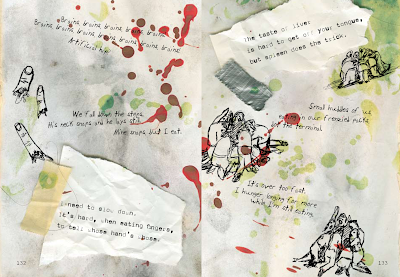 Brains, brains, brains, brains, brains.
Brains, brains, brains, brains, brains, brains.
Brains, brains, brains, brains, brains, brains.
We fall down the steps.
His neck snaps and he lays still.
Mine snaps, but I eat.
I need to slow down.
It's hard, when eating fingers,
to tell whose hand's whose.
132
The taste of liver
is hard to get off your tongue,
but spleen does the trick.
Small huddles of us
eating in our frenzied pits
the terminal.
It's over too fast.
I hunger, longing for more
while I'm still eating.
133